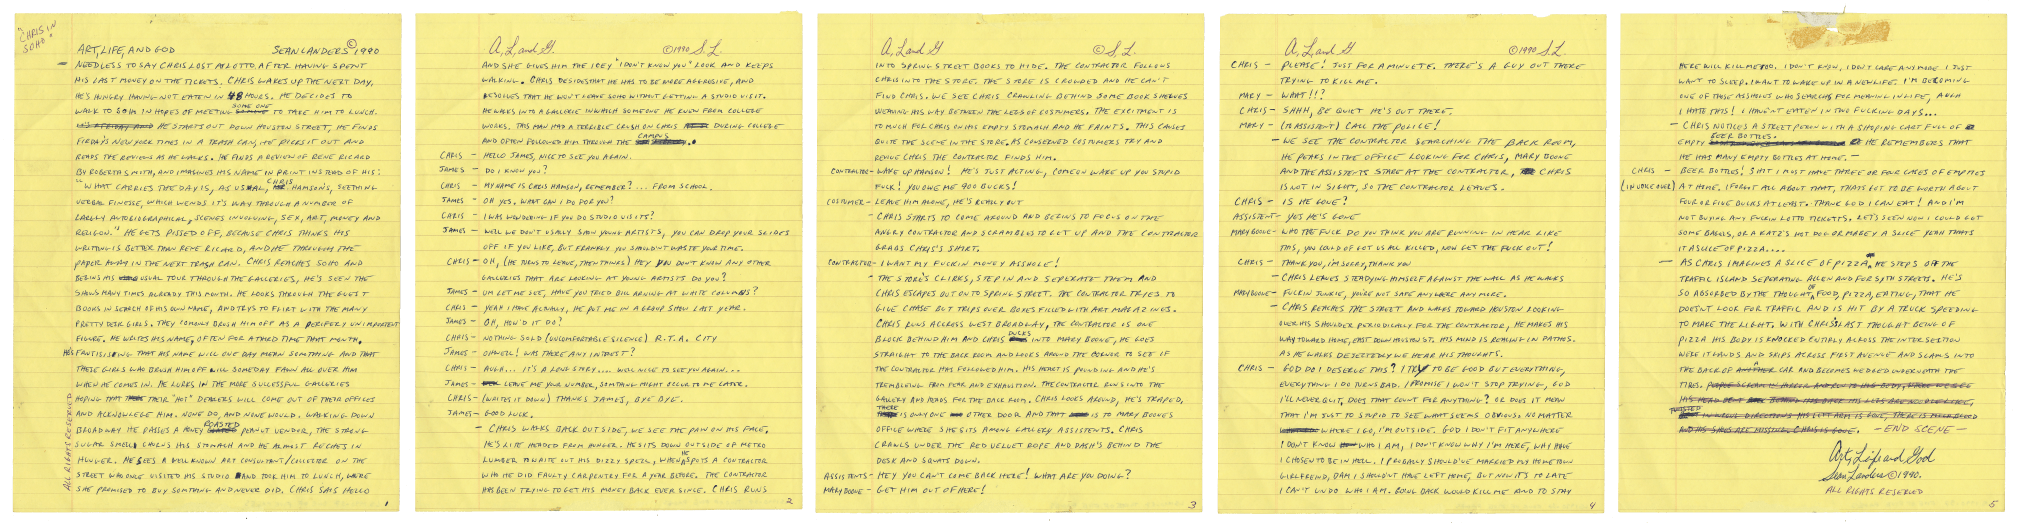 "CHRIS IN
SOHO"
ART, LIFE, AND GOD SEAN LANDERS © 1990
— NEEDLESS TO SAY CHRIS LOST AT LOTTO AFTER HAVING SPENT
HIS LAST MONEY ON THE TICKETS. CHRIS WAKES UP THE NEXT DAY,
HE'S HUNGRY HAVING NOT EATEN IN 48 HOURS. HE DECIDES TO
WALK TO SOHO IN HOPES OF MEETING SOME ONE TO TAKE HIM TO LUNCH.
HE STARTS OUT DOWN HOUSTON STREET, HE FINDS
FIRDAY'S NEW YORK TIMES IN A TRASH CAN, HE PICKS IT OUT AND
READS THE REVIEWS AS HE WALKS. HE FINDS A REVIEW OF RENE RICARD
BY ROBERTA SMITH, AND IMAGINES HIS NAME IN PRINT INSTEAD OF HIS:
"WHAT CARRIES THE DAY IS, AS USUAL, CHRIS HAMSON'S, SEETHING
VERBAL FINESSE, WHICH WENDS IT'S WAY THROUGH A NUMBER OF
LARGLY AUTOBIOGRAPHICAL, SCENES INVOLVING, SEX, ART, MONEY AND
RELIGON." HE GETS PISSED OFF, BECAUSE CHRIS THINKS HIS
WRITING IS BETTER THAN RENE RICARD, AND HE THROUGH THE
PAPER AWAY IN THE NEXT TRASH CAN. CHRIS REACHES SOHO AND
BEGINS HIS USUAL TOUR THROUGH THE GALLERIES, HE'S SEEN THE
SHOWS MANY TIMES ALREADY THIS MONTH. HE LOOKS THROUGH THE GUEST
BOOKS IN SEARCH OF HIS OWN NAME, AND TRYS TO FLIRT WITH THE MANY
PRETTY DESK GIRLS. THEY COMONLY BRUSH HIM OFF AS A PERIFERY UNIMPORTENT
FIGURE. HE WRITES HIS NAME, OFTEN FOR A THIRD TIME THAT MONTH.
HE'S FANTISISING THAT HIS NAME WILL ONE DAY MEAN SOMTHING AND THAT
THESE GIRLS WHO BRUSH HIM OFF WILL SOMEDAY FAWN ALL OVER HIM
WHEN HE COMES IN. HE LURKS IN THE MORE SUCESSFUL GALLERIES
HOPING THAT THEIR "HOT" DEALERS WILL COME OUT OF THEIR OFFICES
AND ACKNOWLEGE HIM. NONE DO, AND NONE WOULD. WALKING DOWN
BROADWAY HE PASSES A HONEY ROASTED PEANUT VENDER, THE STRONG
SUGAR SMELL CHURNS HIS STOMACH AND HE ALMOST RECHES IN
HUNGER. HE SEES A WELL KNOWN ART CONSULTANT/COLLECTOR ON THE
STREET WHO ONCE VISITED HIS STUDIO AND TOOK HIM TO LUNCH, WHERE
SHE PROMISED TO BUY SOMTHING AND NEVER DID. CHRIS SAYS HELLO
ALL RIGHTS RESERVED
1
A, L, and G. © 1990 S. L.
AND SHE GIVES HIM THE ICEY "I DON'T KNOW YOU" LOOK AND KEEPS
WALKING. CHRIS DESIDES THAT HE HAS TO BE MORE AGGRESIVE, AND
RESOLVES THAT HE WON'T LEAVE SOHO WITHOUT GETTING A STUDIO VISIT.
HE WALKS INTO A GALLERIE IN WHICH SOMEONE HE KNEW FROM COLLEGE
WORKS. THIS MAN HAD A TERRIBLE CRUSH ON CHRIS DURING COLLEGE
AND OFTEN FOLLOWED HIM THROUGH THE CAMPUS.
CHRIS — HELLO JAMES, NICE TO SEE YOU AGAIN.
JAMES — DO I KNOW YOU?
CHRIS — MY NAME IS CHRIS HAMSON, REMEMBER?... FROM SCHOOL.
JAMES — OH YES. WHAT CAN I DO FOR YOU?
CHRIS — I WAS WONDERING IF YOU DO STUDIO VISITS?
JAMES — WELL WE DON'T USALLY SHOW YOUNG ARTISTS, YOU CAN DROP YOUR SLIDES
OFF IF YOU LIKE, BUT FRANKLY YOU SHOULDN'T WASTE YOUR TIME.
CHRIS — OH, (HE TURNS TO LEAVE, THEN THINKS) HEY YOU DON'T KNOW ANY OTHER
GALLERIES THAT ARE LOOKING AT YOUNG ARTISTS DO YOU?
JAMES — UM LET ME SEE, HAVE YOU TRIED BILL ARNING AT WHITE COLUMNS?
CHRIS — YEAH I HAVE ACTUALY, HE PUT ME IN A GROUP SHOW LAST YEAR.
JAMES — OH, HOW'D IT DO?
CHRIS — NOTHING SOLD (UNCOMFORTABLE SILENCE) R.T.A. CITY
JAMES — OH WELL! WAS THERE ANY INTREST?
CHRIS — AUGH... IT'S A LONG STORY.... WELL NICE TO SEE YOU AGAIN...
JAMES — LEAVE ME YOUR NUMBER, SOMTHING MIGHT OCCUR TO ME LATER.
CHRIS — (WRITES IT DOWN) THANKS JAMES, BYE BYE.
JAMES — GOOD LUCK.
— CHRIS WALKS BACK OUTSIDE, WE SEE THE PAIN ON HIS FACE.
HE'S LITE HEADED FROM HUNGER. HE SITS DOWN OUTSIDE OF METRO
LUMBER TO WAITE OUT HIS DIZZY SPEZL, WHEN HE SPOTS A CONTRACTOR
WHO HE DID FAULTY CARPENTRY FOR A YEAR BEFORE. THE CONTRACTOR
HAS BEEN TRYING TO GET HIS MONEY BACK EVER SINCE. CHRIS RUNS
2
A, L, and G. © S. L.
INTO SPRING STREET BOOKS TO HIDE. THE CONTRACTOR FOLLOWS
CHRIS INTO THE STORE. THE STORE IS CROWDED AND HE CAN'T
FIND CHRIS. WE SEE CHRIS CRAWLING BEHIND SOME BOOK SHELVES
WEAVING HIS WAY BETWEEN THE LEGS OF COSTUMERS. THE EXCITMENT IS
TO MUCH FOR CHRIS ON HIS EMPTY STOMACH AND HE FAINTS. THIS CAUSES
QUITE THE SCENE IN THE STORE. AS CONSERNED COSTUMERS TRY AND
REVIVE CHRIS THE CONTRACTOR FINDS HIM.
CONTRACTOR — WAKE UP HAMSON! HE'S JUST ACTING, COME ON WAKE UP YOU STUPID
FUCK! YOU OWE ME 900 BUCKS!
COSTUMER — LEAVE HIM ALONE, HE'S REALLY OUT
— CHRIS STARTS TO COME AROUND AND BEGINS TO FOCUS ON THE
ANGRY CONTRACTOR AND SCRAMBLES TO GET UP AND THE CONTRACTOR
GRABS CHRIS'S SHIRT.
CONTRACTOR — I WANT MY FUCKIN MONEY ASSHOLE!
— THE STORE'S CLIRKS, STEP IN AND SEPERATE THEM AND
CHRIS ESCAPES OUT ONTO SPRING STREET. THE CONTRACTOR TRYES TO
GIVE CHASE BUT TRIPS OVER BOXES FILLED WITH ART MAGAZINES.
CHRIS RUNS ACCROSS WEST BROADWAY, THE CONTRACTOR IS ONE
BLOCK BEHIND HIM AND CHRIS DUCKS INTO MARY BOONE, HE GOES
STRAIGHT TO THE BACK ROOM AND LOOKS AROUND THE CORNOR TO SEE IF
THE CONTRACTOR HAS FOLLOWED HIM. HIS HEART IS POUNDING AND HE'S
TREMBLEING FROM FEAR AND EXHAUTION. THE CONTRACTOR RUNS INTO THE
GALLERY AND HEADS FOR THE BACK ROOM. CHRIS LOOKS AROUND, HE'S TRAPED,
THERE IS ONLY ONE OTHER DOOR AND THAT IS TO MARY BOONE'S
OFFICE WHERE SHE SITS AMONG GALLERY ASSISTENTS. CHRIS
CRAWLS UNDER THE RED VELVET ROPE AND DASH'S BEHIND THE
DESK AND SQUATS DOWN.
ASSISTENTS — HEY YOU CAN'T COME BACK HERE! WHAT ARE YOU DOING?
MARY BOONE — GET HIM OUT OF HERE!
3
A, L, and G. © 1990 S. L.
CHRIS — PLEASE! JUST FOR A MINUETE. THERE'S A GUY OUT THERE
TRYING TO KILL ME.
MARY — WHAT!!?
CHRIS — SHHH, BE QUIET HE'S OUT THERE.
MARY — (TO ASSISTENT) CALL THE POLICE!
— WE SEE THE CONTRACTOR SEARCHING THE BACK ROOM,
HE PEARS IN THE OFFICE LOOKING FOR CHRIS, MARY BOONE
AND THE ASSISTENTS STARE AT THE CONTRACTOR, CHRIS
IS NOT IN SIGHT, SO THE CONTRACTOR LEAVES.
CHRIS — IS HE GONE?
ASSISTENT — YES HE'S GONE
MARY BOONE — WHO THE FUCK DO YOU THINK YOU ARE RUNNING IN HEAR LIKE
THIS, YOU COULD OF GOT US ALL KILLED, NOW GET THE FUCK OUT!
CHRIS — THANK YOU, I'M SORRY, THANK YOU
— CHRIS LEAVES STEADYING HIMSELF AGAINST THE WALL AS HE WALKS
MARY BOONE — FUCKIN JUNKIE, YOU'RE NOT SAFE ANYWHERE ANY MORE.
— CHRIS REACHES THE STREET AND WALKS TOWARD HOUSTON LOOKING
OVER HIS SHOULDER PERIODICALLY FOR THE CONTRACTOR, HE MAKES HIS
WAY TOWARD HOME, EAST DOWN HOUSTON ST. HIS MIND IS REALING IN PATHOS.
AS HE WALKS DEJECTEDLY WE HEAR HIS THOUGHTS.
CHRIS — GOD DO I DESERVE THIS? I TRY TO BE GOOD BUT EVERYTHING,
EVERYTHING I DO TURNS BAD. I PROMISE I WON'T STOP TRYING, GOD
I'LL NEVER QUIT, DOES THAT COUNT FOR ANYTHING? OR DOES IT MEAN
THAT I'M JUST TO STUPID TO SEE WHAT SEEMS OBVIOUS. NO MATTER
WHERE I GO, I'M OUTSIDE. GOD I DON'T FIT ANYWHERE
I DON'T KNOW WHO I AM, I DON'T KNOW WHY I'M HERE, WHY HAVE
I CHOSEN TO BE IN HELL. I PROBALY SHOULD'VE MARRIED MY HOMETOWN
GIRLFRIEND, DAM I SHOULDN'T HAVE LEFT HOME, BUT NOW IT'S TO LATE
I CAN'T UNDO WHO I AM. GOING BACK WOULD KILL ME AND TO STAY
4
HERE WILL KILL ME TOO. I DON'T KNOW, I DON'T CARE ANYMORE. I JUST
WANT TO SLEEP. I WANT TO WAKE UP IN A NEW LIFE. I'M BECOMING
ONE OF THOSE ASSHOLES WHO SEARCHS FOR MEANING IN LIFE, AUGH
I HATE THIS! I HAVEN'T EATEN IN TWO FUCKING DAYS...
— CHRIS NOTICES A STREET PERSON WITH A SHOPING CART FULL OF
EMPTY BEER BOTTLES. HE REMEMBERS THAT
HE HAS MANY EMPTY BOTTLES AT HOME. —
CHRIS — BEER BOTTLES! SHIT I MUST HAVE THREE OR FOUR CASES OF EMPTIES
(IN VOICE OVER) AT HOME. I FORGOT ALL ABOUT THAT, THATS GOT TO BE WORTH ABOUT
FOUR OR FIVE BUCKS AT LEAST. THANK GOD I CAN EAT! AND I'M
NOT BUYING ANY FUCKIN LOTTO TICKETS. LET'S SEE NOW I COULD GET
SOME BAGELS, OR A KATZ'S HOT DOG OR MABEY A SLICE YEAH THATS
IT A SLICE OF PIZZA....
— AS CHRIS IMAGINES A SLICE OF PIZZA, HE STEPS OFF THE
TRAFFIC ISLAND SEPERATING ALLEN AND FORSYTH STREETS. HE'S
SO ABSORBED BY THE THOUGHT OF FOOD, PIZZA, EATING, THAT HE
DOESN'T LOOK FOR TRAFFIC AND IS HIT BY A TRUCK SPEEDING
TO MAKE THE LIGHT. WITH CHRIS'S LAST THOUGHT BEING OF
PIZZA HIS BODY IS KNOCKED ENTIRLY ACROSS THE INTERSECTION
WERE IT LANDS AND SKIPS ACROSS FIRST AVENUE AND SLAMS INTO
THE BACK OF A CAR AND BECOMES WEDGED UNDERNEATH THE
TIRES.
— END SCENE —
Art, Life and God
Sean Landers © 1990.
ALL RIGHTS RESERVED
5